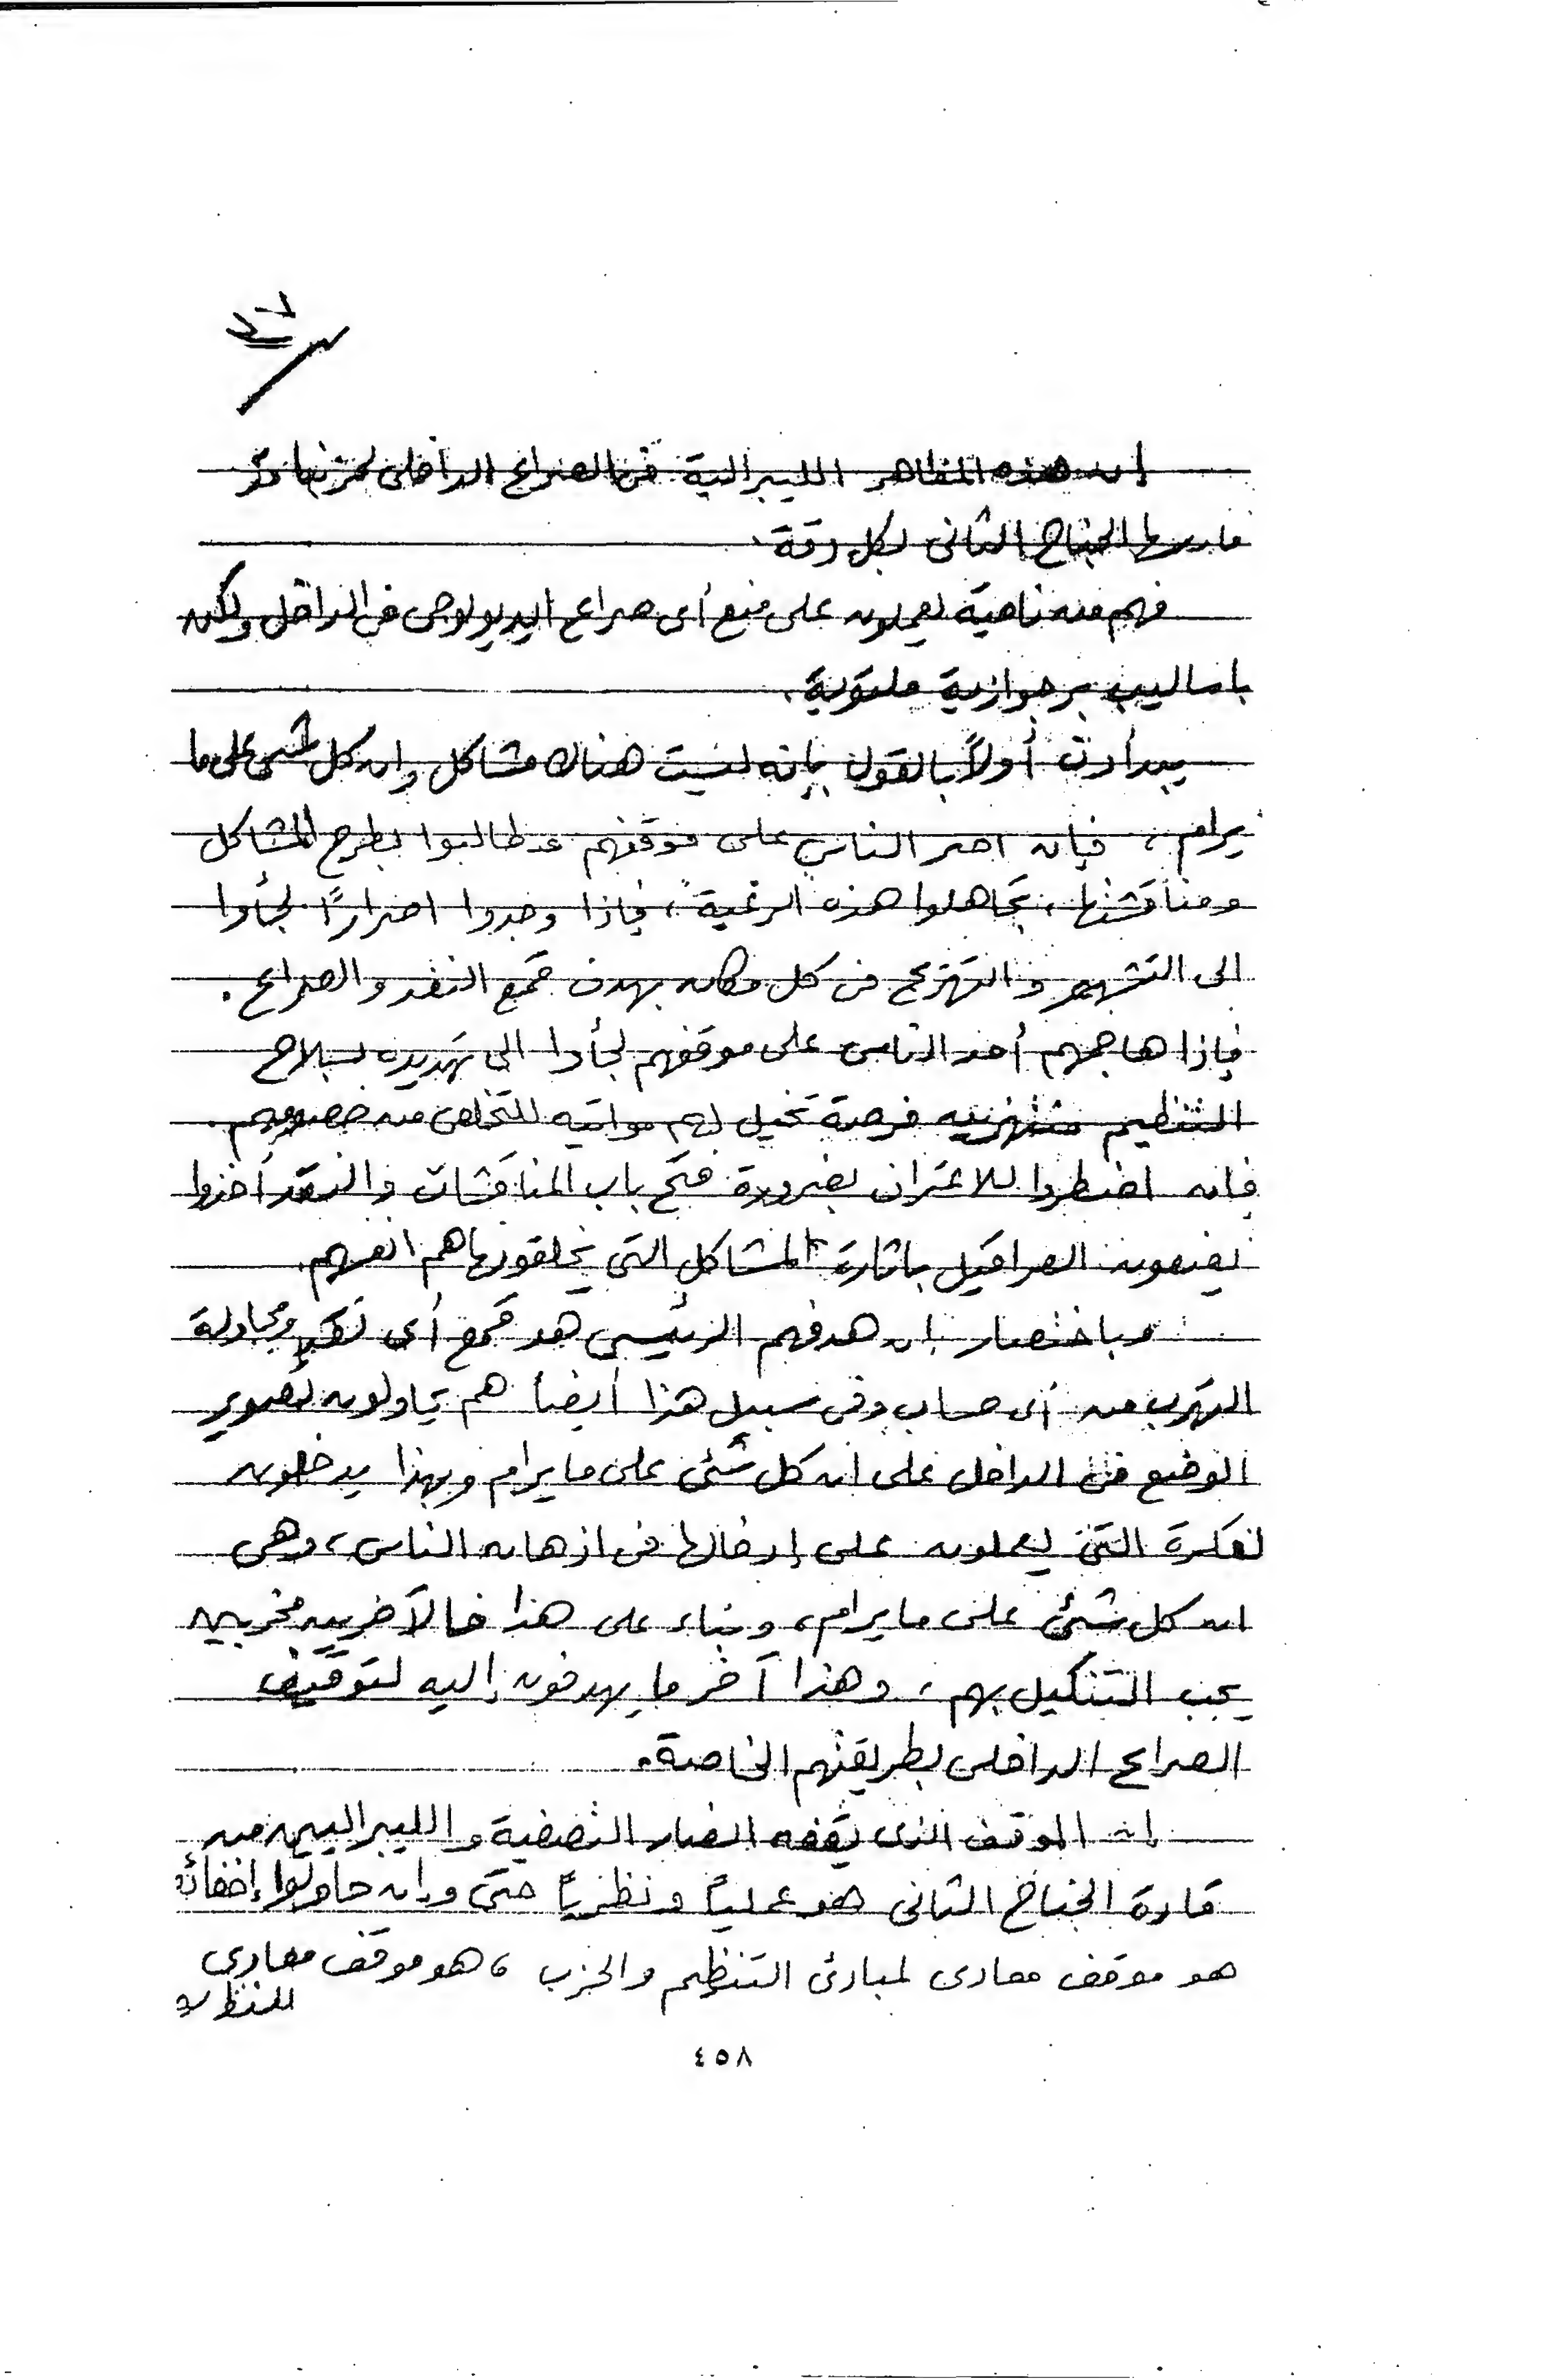 إن هذه المظاهر الليبرالية في الصراع الداخلى لحزبنا قد
مارسها الجناح الثانى بكل دقة.
فهم من ناحية يعملون على منع أى صراع ايديولوجى فى الداخل ولكن
باساليب برجوازية ملتوية.
يبدأون أولاً بالقول بإنه ليست هناك مشاكل وان كل شىء على ما
يرام، فإن اصر الناس على موقفهم وطالبوا بطرح المشاكل
ومناقشتها، تجاهلوا هذه "الرغبة"، فإذا وجدوا اصراراً لجأوا
الى التشهير والتهريج فى كل مكان بهدف قمع النقد والصراع.
فإذا هاجمهم أحد الناس على موقفهم لجأوا الى تهديده بسلاح
التنظيم منتهزين فرصة تخيل لهم مواتيه للتخلص من خصومهم.
فإن اضطروا للاعتراف بضرورة فتح باب المناقشات والنقد أخذوا
يضعون العراقيل باثارة المشاكل التى يخلقونها هم انفسهم.
وباختصار إن هدفهم الرئيسى هو قمع أى نقد ومحاولة
التهرب من أى حساب وفى سبيل هذا أيضاً هم يحاولون تصوير
الوضع فى الداخل على ان كل شئ على ما يرام وبهذا يدخلون
لفكرة التى يعملون على إدخالها فى اذهان الناس، وهى
ان كل شئ على ما يرام، وبناء على هذا فالآخرين مخربين
يجب التنكيل بهم، وهذا آخر ما يهدفون إليه لتوقيف
الصراع الداخلى بطريقتهم الخاصة.
ان الموقف الذى يقفه انصار التصفية والليبراليين من
قادة الجناح الثانى هو عملياً ونظرياً حتى وان حاولوا إخفائه
هو موقف معادى لمبادئ التنظيم والحزب، هو موقف معادى
٤٥٨